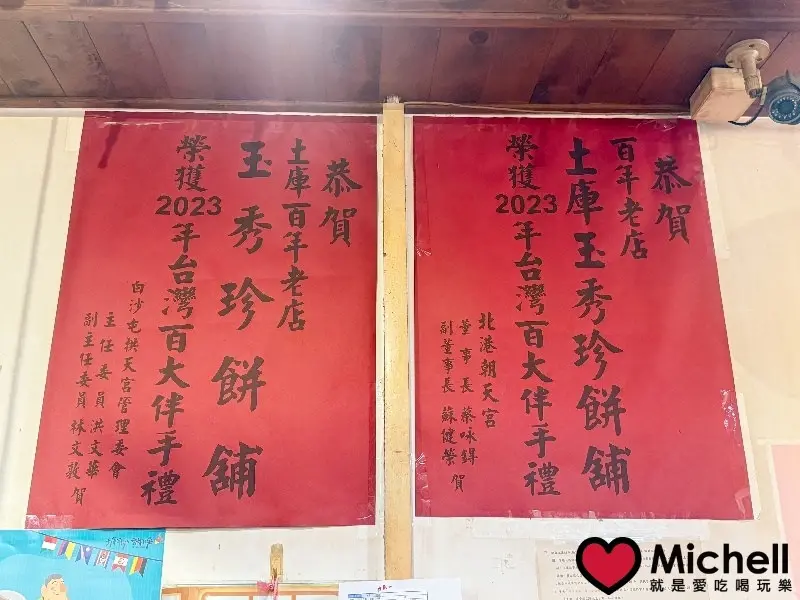 恭賀
土庫百年老店
玉秀珍餅舖
榮獲2023年台灣百大伴手禮
白沙屯拱天宮管理委會
主任委員 洪文華
副主任委員 林文敦 賀
恭賀
百年老店
土庫玉秀珍餅舖
榮獲2023年台灣百大伴手禮
北港朝天宮
董事長 蔡咏鍀
副董事長 蘇健榮 賀
Michell
就是愛吃喝玩樂